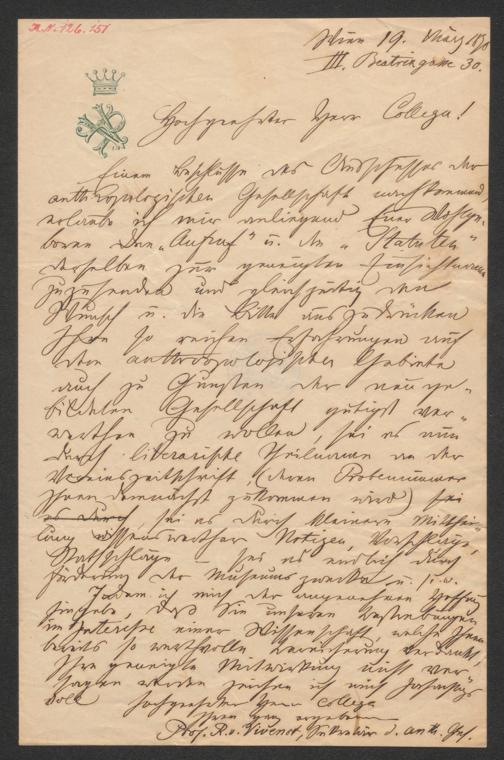 A.N. 126.151
Wien 19. März 1870
III. Beatrixgasse 30.
Hochgeehrter Herr Collega!
Einem Beschlusse des Ausschusses der
anthropologischen Gesellschaft nachkommend,
erlaube ich mir anliegend Euer Wohlge-
boren den „Aufruf“ u. die „Statuten“
derselben zur geneigten Einsichtnahme
zuzusenden und gleichzeitig den
Wunsch u. die Bitte auszudrücken
Ihre so reichen Erfahrungen auf
dem anthropologischen Gebiete
auch zu Gunsten der neu ge-
bildeten Gesellschaft gütigst ver-
werthen zu wollen, sei es nun
durch literarische Theilnahme an der
Vereinszeitschrift, (deren Probenummer
Ihnen demnächst zukommen wird) sei
es durch, sei es durch kleinere Mitthei-
lung wissenswerther Notizen, Vorschläge,
Rathschläge – sei es endlich durch
Förderung der Museumszwecke u. s. w.
Indem ich mich der angenehmen Hoffnung
hingebe, daß Sie unseren Bestrebungen
im Interesse einer Wissenschaft, welche Ihnen
bereits so werthvolle Bereicherung verdankt,
Ihre geneigte Mitwirkung nicht ver-
sagen werden zeichne ich mich hochachtungs
voll hochgeehrter Herr Collega
Ihren ganz ergebenen
Prof. R. v. Vivenot, Sekretär d. anth. Ges.